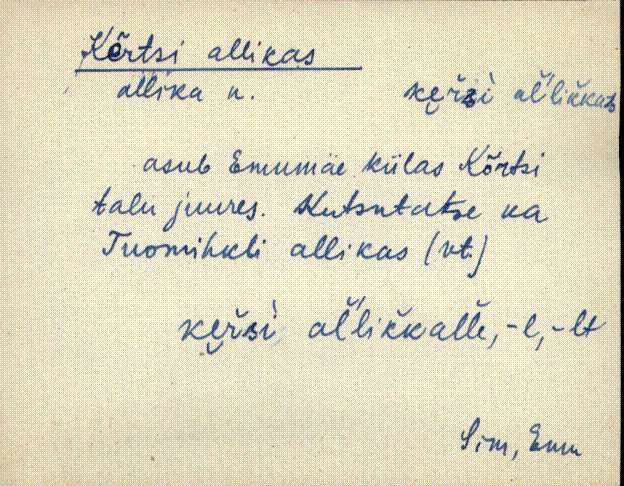 Kõrtsi allikas
allika n. kẹřsì al̆likkas
asub Emumäe külas Kõrtsi
talu juures. Kutsutatse ka
Tuomihkli allikas (vt.)
kẹřsì al̆likkalle, -l, -lt
Sim, Emm